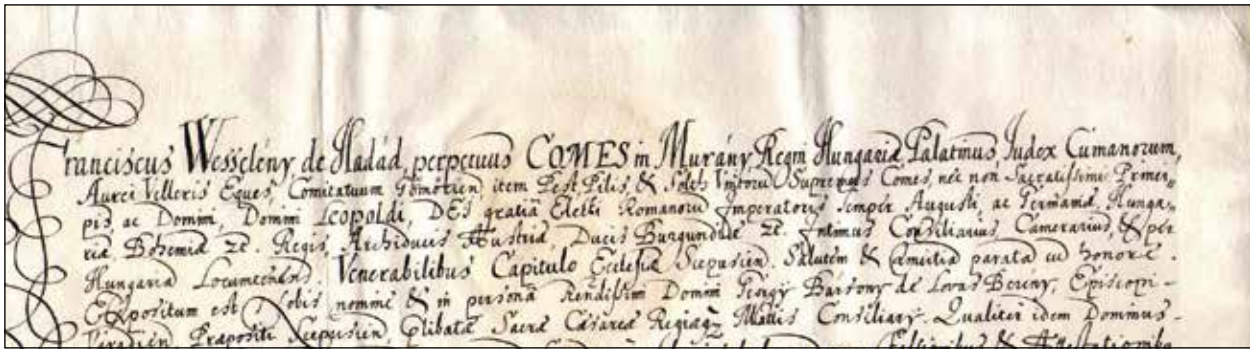 Franciscus Wesselény de Hadád, perpetuus COMES in Murány Regni Hungariæ Palatinus, Iudex Cumanorum,
Aurei Velleris Eques, Comitatuum Gömörien, item Pest Pilis, & Solth Supremus Comes, nec non Sacratissimi Princi-
pis, ac Domini, Domini Leopoldi, DEI gratiâ Electi Romanorū Imperatoris semper Augusti, ac Germaniæ, Hunga-
riæ, Bohemiæ zc. Regis, Archiducis Austriæ, Ducis Burgundiæ zc. Intimus Consiliarius, Camerarius, & per
Hungariā Locumtenens, Venerabilibus Capitulo Ecclesiæ Scepusien. Salutem & Amicitiā paratā cū honore.
Expositum est Nobis nomine & in personâ Rendissim Domini Georgÿ Barsony de Lovas Berény, Episcopi -
Præpositi Scepusien, Sacræ Cæsareæ Regiæqz Mattis Consiliarÿ. Qualiter idem Dominus -